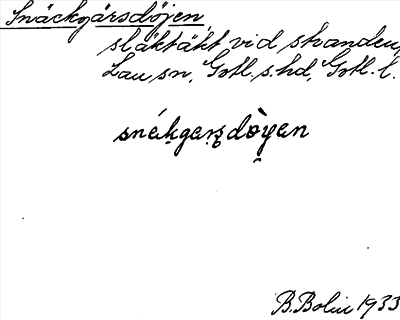 Snäckgårsdøjen,
släktäkt vid stranden,
Lau sn, Gotl. s. hd, Gotl. l.
snékgaꞧs̥dòyen
B. Bolin 1933